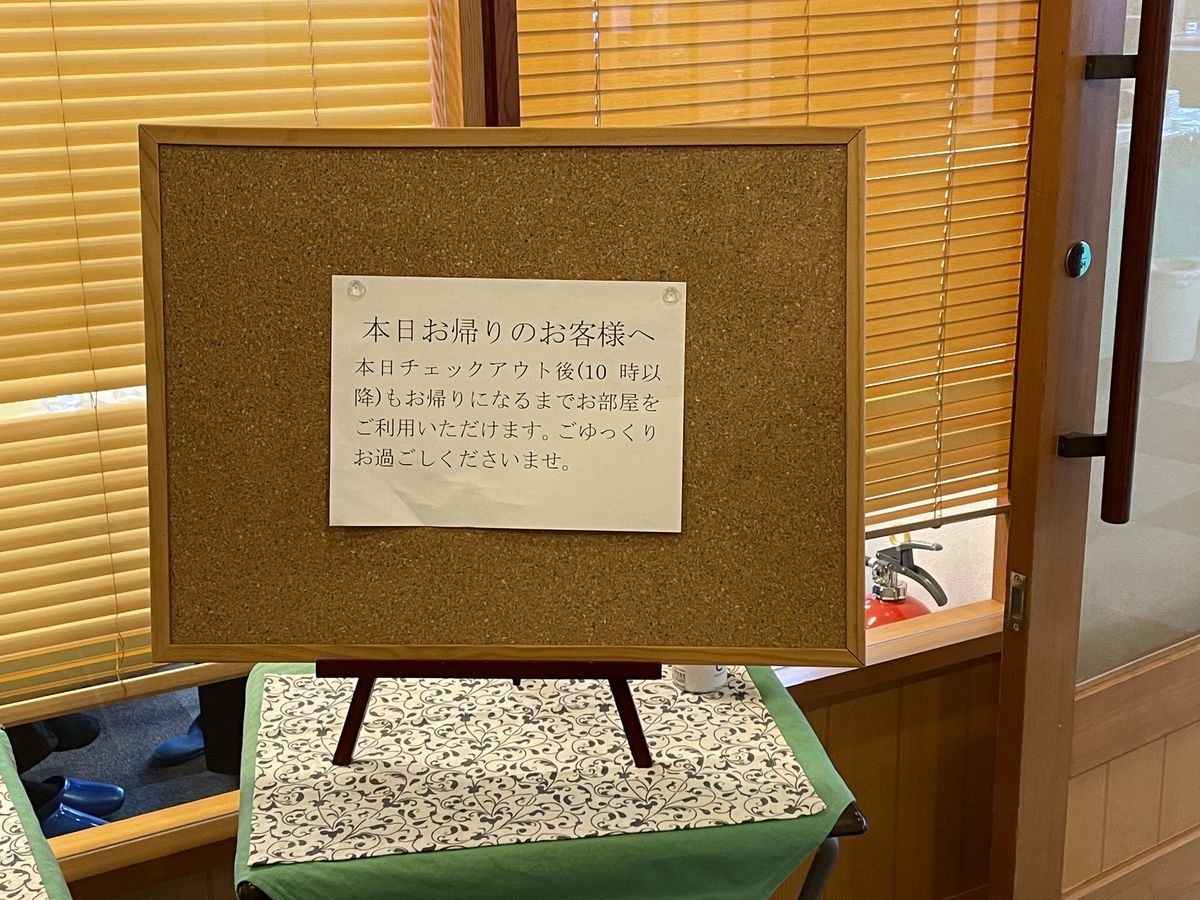 本日お帰りのお客様へ
本日チェックアウト後(10 時以
降)もお帰りになるまでお部屋を
ご利用いただけます。ごゆっくり
お過ごしくださいませ。